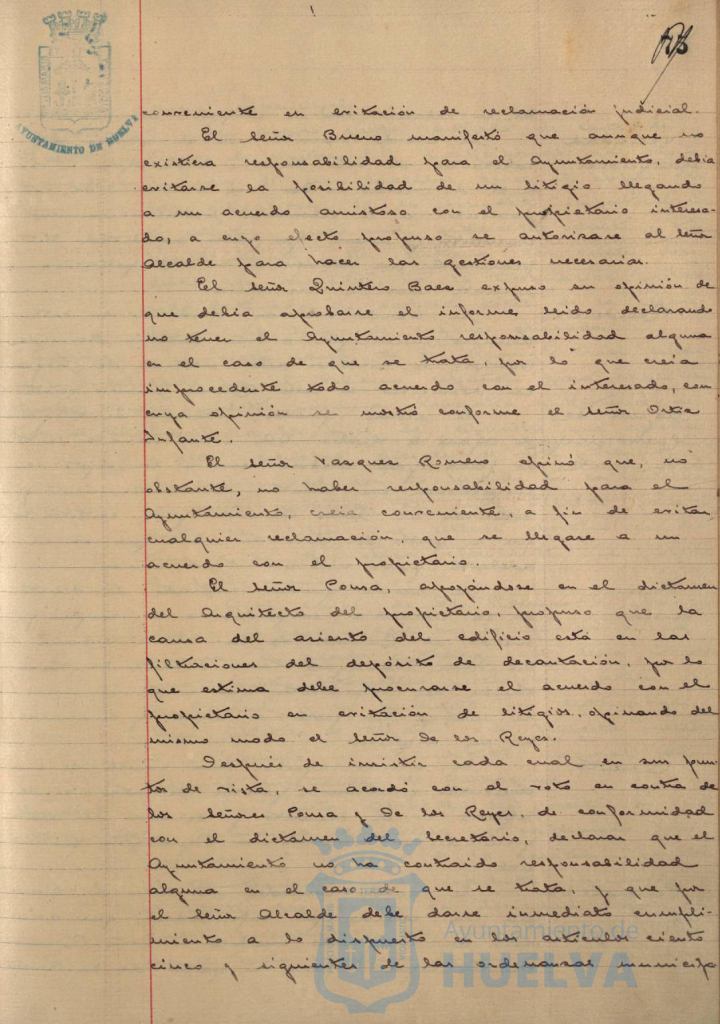 AYUNTAMIENTO DE HUELVA
conveniente en evitación de reclamación judicial.
El Señor Bueno manifestó que aunque no
existiera responsabilidad para el Ayuntamiento, debia
evitarse la posibilidad de un litigio llegando
a un acuerdo amistoso con el propietario interesa-
do, a cuyo efecto propuso se autorizase al Señor
Alcalde para hacer las gestiones necesarias.
El Señor Quintero Baez expuso su opinión de
que debia aprobarse el informe leido declarando
no tener el Ayuntamiento responsabilidad alguna
en el caso de que se trata, por lo que creia
improcedente todo acuerdo con el interesado, con
cuya opinión se mostró conforme el Señor Ortiz
Infante.
El Señor Vazquez Romero opinó que, no
obstante, no haber responsabilidad para el
Ayuntamiento, creia conveniente, a fin de evitar
cualquier reclamación, que se llegase a un
acuerdo con el propietario.
El Señor Ponsa, apoyándose en el dictamen
del Arquitecto del propietario, propuso que la
causa del asiento del edificio está en las
filtraciones del depósito de decantación, por lo
que estima debe procurarse el acuerdo con el
propietario en evitación de litigios, opinando del
mismo modo el Señor De los Reyes.
Después de insistir cada cual en sus pun-
tos de vista, se acordó con el voto en contra de
los Señores Ponsa y De los Reyes, de conformidad
con el dictamen del Secretario, declarar que el
Ayuntamiento no ha contraido responsabilidad
alguna en el caso de que se trata, y que por
el Señor Alcalde debe darse inmediato cumpli-
miento a lo dispuesto en los artículos ciento
cinco y siguientes de las ordenanzas municipa
Ayuntamiento de
HUELVA